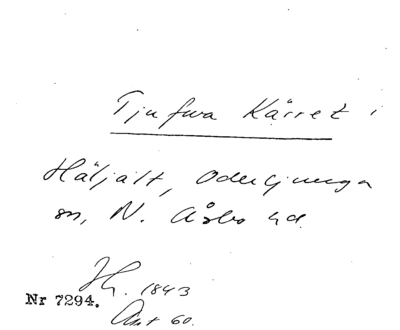 Tjufwa Kärret i
Häljalt, Oderljunga
sn, N. Åsbo hd.
1843
Nr 7294.
60.